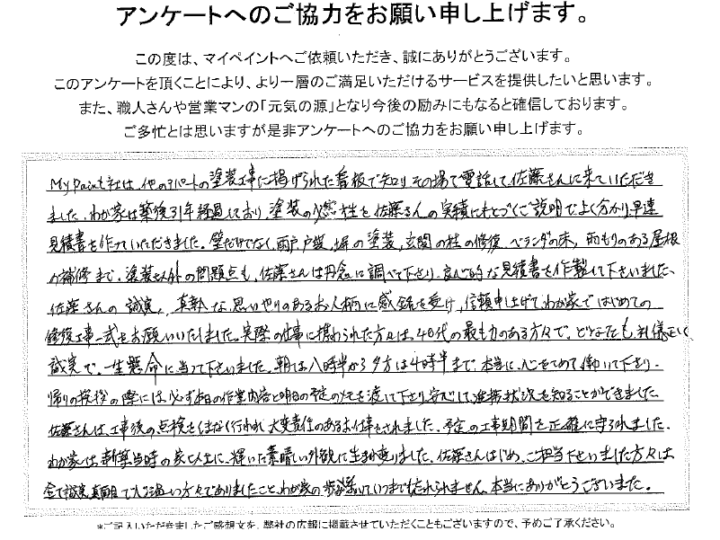 アンケートへのご協力をお願い申し上げます。
この度は、マイペイントへご依頼いただき、誠にありがとうございます。
このアンケートを頂くことにより、より一層のご満足いただけるサービスを提供したいと思います。
また、職人さんや営業マンの「元気の源」となり今後の励みにもなると確信しております。
ご多忙とは思いますが是非アンケートへのご協力をお願い申し上げます。
My Paint社は、他のアパートの塗装工事に掲げられた看板で知り、その場で電話して、佐藤さんに来ていただき
ました。わが家は築後31年経過しており、塗装の必要性を佐藤さんの実績にもとづくご説明でよく分かり、早速
見積書を作っていただきました。壁だけでなく、雨戸、戸袋、塀の塗装、玄関の柱の修復、ベランダの床、雨もりのある屋根
の補修まで、塗装以外の問題点も、佐藤さんは丹念に調べて下さり、良心的な見積書を作製して下さいました。
佐藤さんの誠実、真摯な思いやりのあるお人柄に感銘を受け、信頼申し上げて、わが家ではじめての
修復工事一式をお願いいたしました。実際の仕事に携わられた方々は、40代の最も力のある方々で、どなたも礼儀正しく
誠実で、一生懸命に当って下さいました。朝は八時半から夕方は4時半まで、本当に、心をこめて働いて下さり、
帰りの挨拶の際には、必ず本日の作業内容と明日の予定のメモを渡して下さり、安心して、進捗状況を知ることができました。
佐藤さんは、工事後の点検をくまなく行われ、大変責任のあるお仕事をされました。予定の工事期間を正確に守られました。
わが家は、新築当時の家と人生に、輝いた素晴しい外観に生まれ変りました。佐藤さんはじめ、ご担当下さいました方々は
全て誠実、真面目で人の温い方々でありましたこと、わが家の歩みと続いていつまでも忘れられません。本当にありがとうございました。
*ご記入いただきましたご感想文を、弊社の広報に掲載させていただくこともございますので、予めご了承ください。